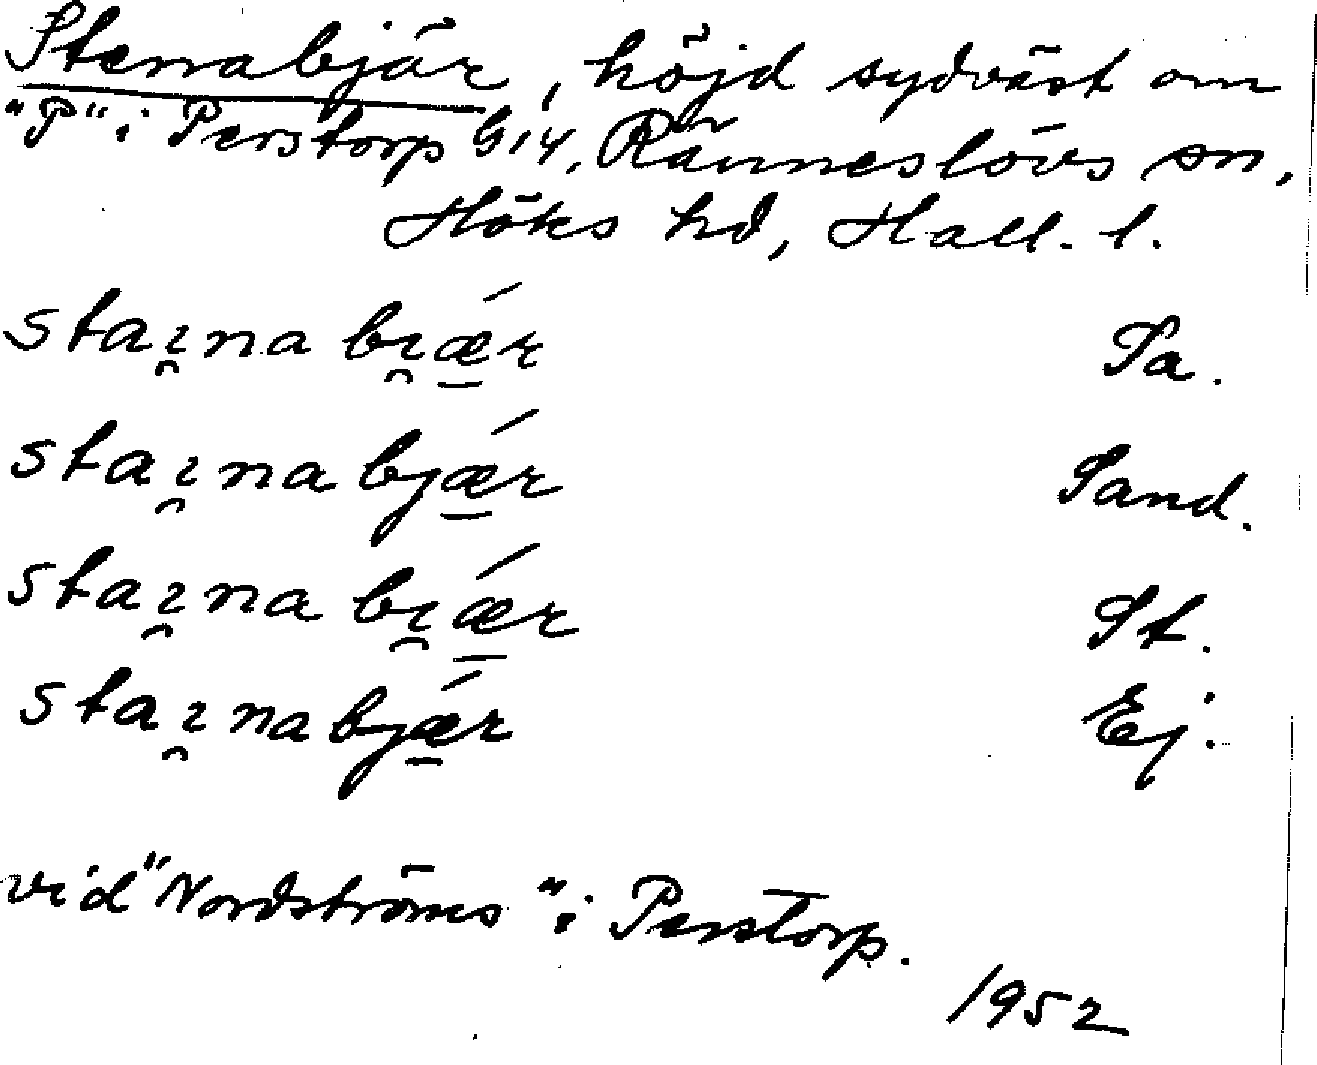 Stenabjär, höjd sydväst om
"P" i Perstorp G14, Ränneslövs sn,
Höks hd, Hall. l.
staɪ̯na bɪ̯ǽ̱r Sa.
staɪ̯na bjǽ̱r Sand.
staɪ̯na bɪ̯ǽ̱r St.
staɪ̯na bjǽ̱r Ej.
vid "Nordströms" i Perstorp.
1952